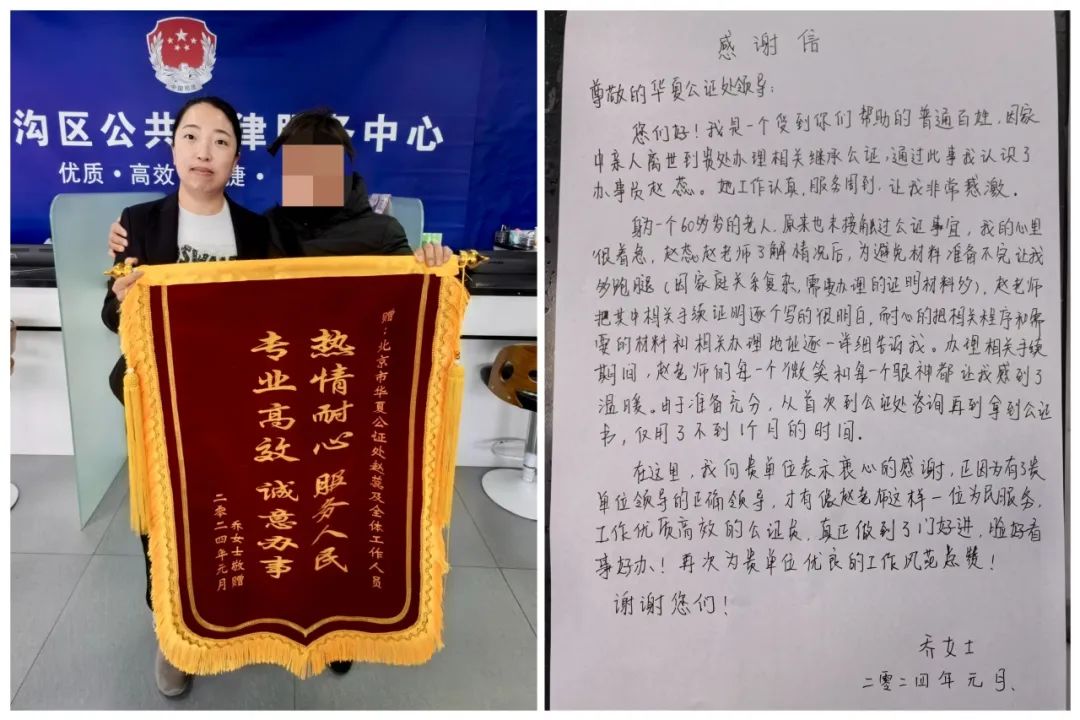 中国司法
沟区公共 律服务中心
优质·高效 捷·
赠：北京市华夏公证处赵蕊及全体工作人员
热情耐心 服务人民
专业高效 诚意办事
乔女士敬赠
二零二四年元月
感谢信
尊敬的华夏公证处领导：
您们好！我是一个受到你们帮助的普通百姓，因家
中亲人离世到贵处办理相关继承公证，通过此事我认识了
办事员赵蕊。她工作认真，服务周到，让我非常感激。
身为一个60多岁的老人，原来也未接触过公证事宜，我的心里
很着急，赵蕊赵老师了解情况后，为避免材料准备不完让我
多跑腿（因家庭关系复杂，需要办理的证明材料多），赵老师
把其中相关手续证明逐个写的很明白，耐心的把相关程序和需
要的材料和相关办理地址逐一详细告诉我。办理相关手续
期间，赵老师的每一个微笑和每一个眼神都让我感到了
温暖。由于准备充分，从首次到公证处咨询再到拿到公证
书，仅用了不到1个月的时间。
在这里，我向贵单位表示衷心的感谢，正因为有了贵
单位领导的正确领导，才有像赵老师这样一位为民服务，
工作优质高效的公证员，真正做到了门好进，脸好看
事好办！再次为贵单位优良的工作风范点赞！
谢谢您们！
乔女士
二零二四年元月、